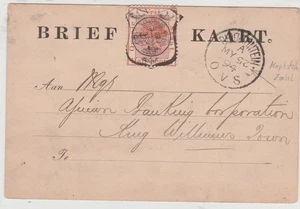 BRIEF KAART.
A
MY
94
O V S
Aan
African Banking Corporation
King Williams Town
To